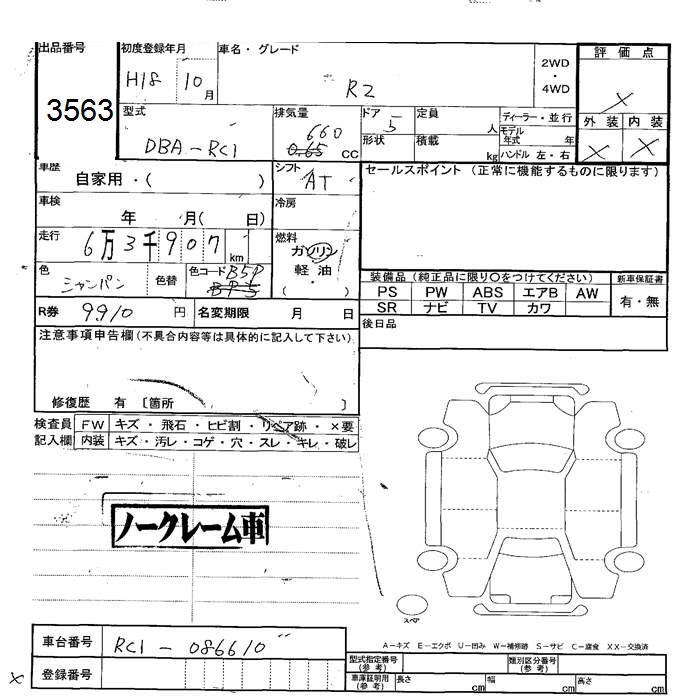 出品番号
3563
初度登録年月
H18 10 月
車名・グレード
R2
2WD
・
4WD
評価点
×
型式
DBA-RC1
排気量
660
0.65 cc
ドア
5
定員
人
形状
積載
kg
ディーラー・並行
モデル年式 年
ハンドル 左・右
外装 内装
× ×
車歴
自家用・( )
シフト
AT
セールスポイント (正常に機能するものに限ります)
車検
年 月( 日)
冷房
走行
6万3千907 km
燃料
ガソリン
軽油
・
( )
色
シャンパン
色替
色コード B5P
装備品 (純正品に限り〇をつけてください)
新車保証書
PS PW ABS エアB AW
有・無
SR ナビ TV カワ
R券 9910 円
名変期限 月 日
後日品
注意事項申告欄 (不具合内容等は具体的に記入して下さい)
修復歴 有 〔箇所 〕
検査員記入欄
FW キズ・飛石・ヒビ割・リペア跡・×要
内装 キズ・汚レ・コゲ・穴・スレ・キレ・破レ
ノークレーム車
スペア
車台番号 RC1-086610
登録番号
×
A−キズ E−エクボ U−凹み W−補修跡 S−サビ C−腐食 XX−交換済
型式指定番号(参考)
類別区分番号(参考)
車庫証明用(参考) 長さ cm 幅 cm 高さ cm